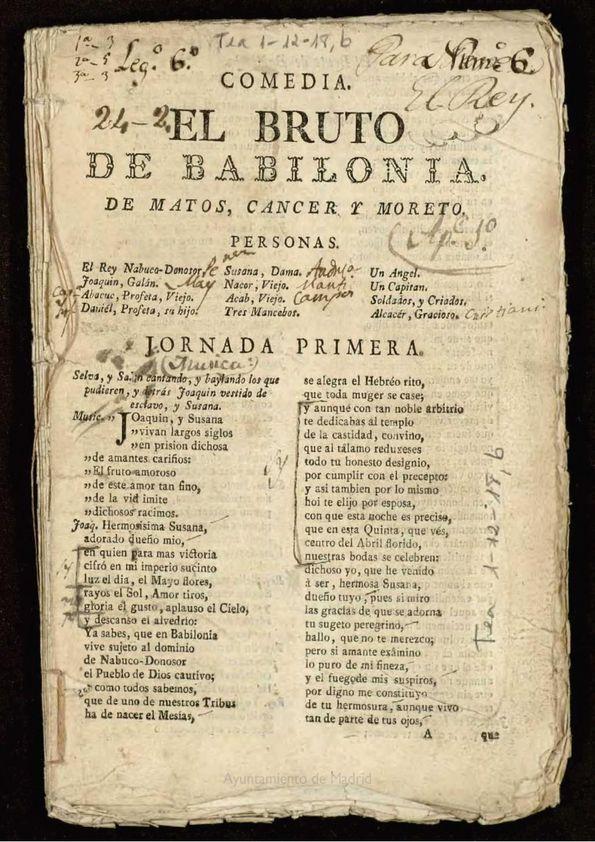 1ª-3
2ª-5
3ª-3
Legº. 6º.
Tea 1-12-18, b
Para
6.
El Rey.
COMEDIA.
24-2.
EL BRUTO
DE BABILONIA.
DE MATOS, CANCER Y MORETO.
PERSONAS.
Apº. 1º
El Rey Nabuco-Donosor.
Joaquin, Galán.
Abacuc, Profeta, Viejo.
Daniél, Profeta, su hijo.
Susana, Dama.
Nacor, Viejo.
Acab, Viejo.
Tres Mancebos.
Un Angel.
Un Capitan.
Soldados, y Criados.
Alcacér, Gracioso.
JORNADA PRIMERA.
(Musica)
Selva, y Salen cantando, y baylando los que
pudieren, y detrás Joaquin vestido de
esclavo, y Susana.
Music. „ JOaquin, y Susana
„vivan largos siglos
„en prision dichosa
„de amantes cariños:
„El fruto amoroso
„de este amor tan fino,
„de la vid imite
„dichosos racimos.
Joaq. Hermosisima Susana,
adorado dueño mio,
en quien para mas victoria
cifró en mi imperio sucinto
luz el dia, el Mayo flores,
rayos el Sol, Amor tiros,
gloria el gusto, aplauso el Cielo,
y descanso el alvedrio:
Ya sabes, que en Babilonia
vive sujeto al dominio
de Nabuco-Donosor
el Pueblo de Dios cautivo;
y como todos sabemos,
que de uno de nuestros Tribus
ha de nacer el Mesias,
se alegra el Hebréo rito,
que toda muger se case;
y aunque con tan noble arbitrio
te dedicabas al templo
de la castidad, convino,
que al tálamo reduxeses
todo tu honesto designio,
por cumplir con el precepto:
y asi tambien por lo mismo
hoi te elijo por esposa,
con que esta noche es preciso,
que en esta Quinta, que vés,
centro del Abril florido,
nuestras bodas se celebren:
dichoso yo, que he venido
á ser, hermosa Susana,
dueño tuyo, pues si miro
las gracias de que se adorna
tu sugeto peregrino,
hallo, que no te merezco;
pero si amante exâmino
lo puro de mi fineza,
y el fuego de mis suspiros,
por digno me constituyo
de tu hermosura, aunque vivo
tan de parte de tus ojos,
A que
Tea 1-12-18, b
Ayuntamiento de Madrid